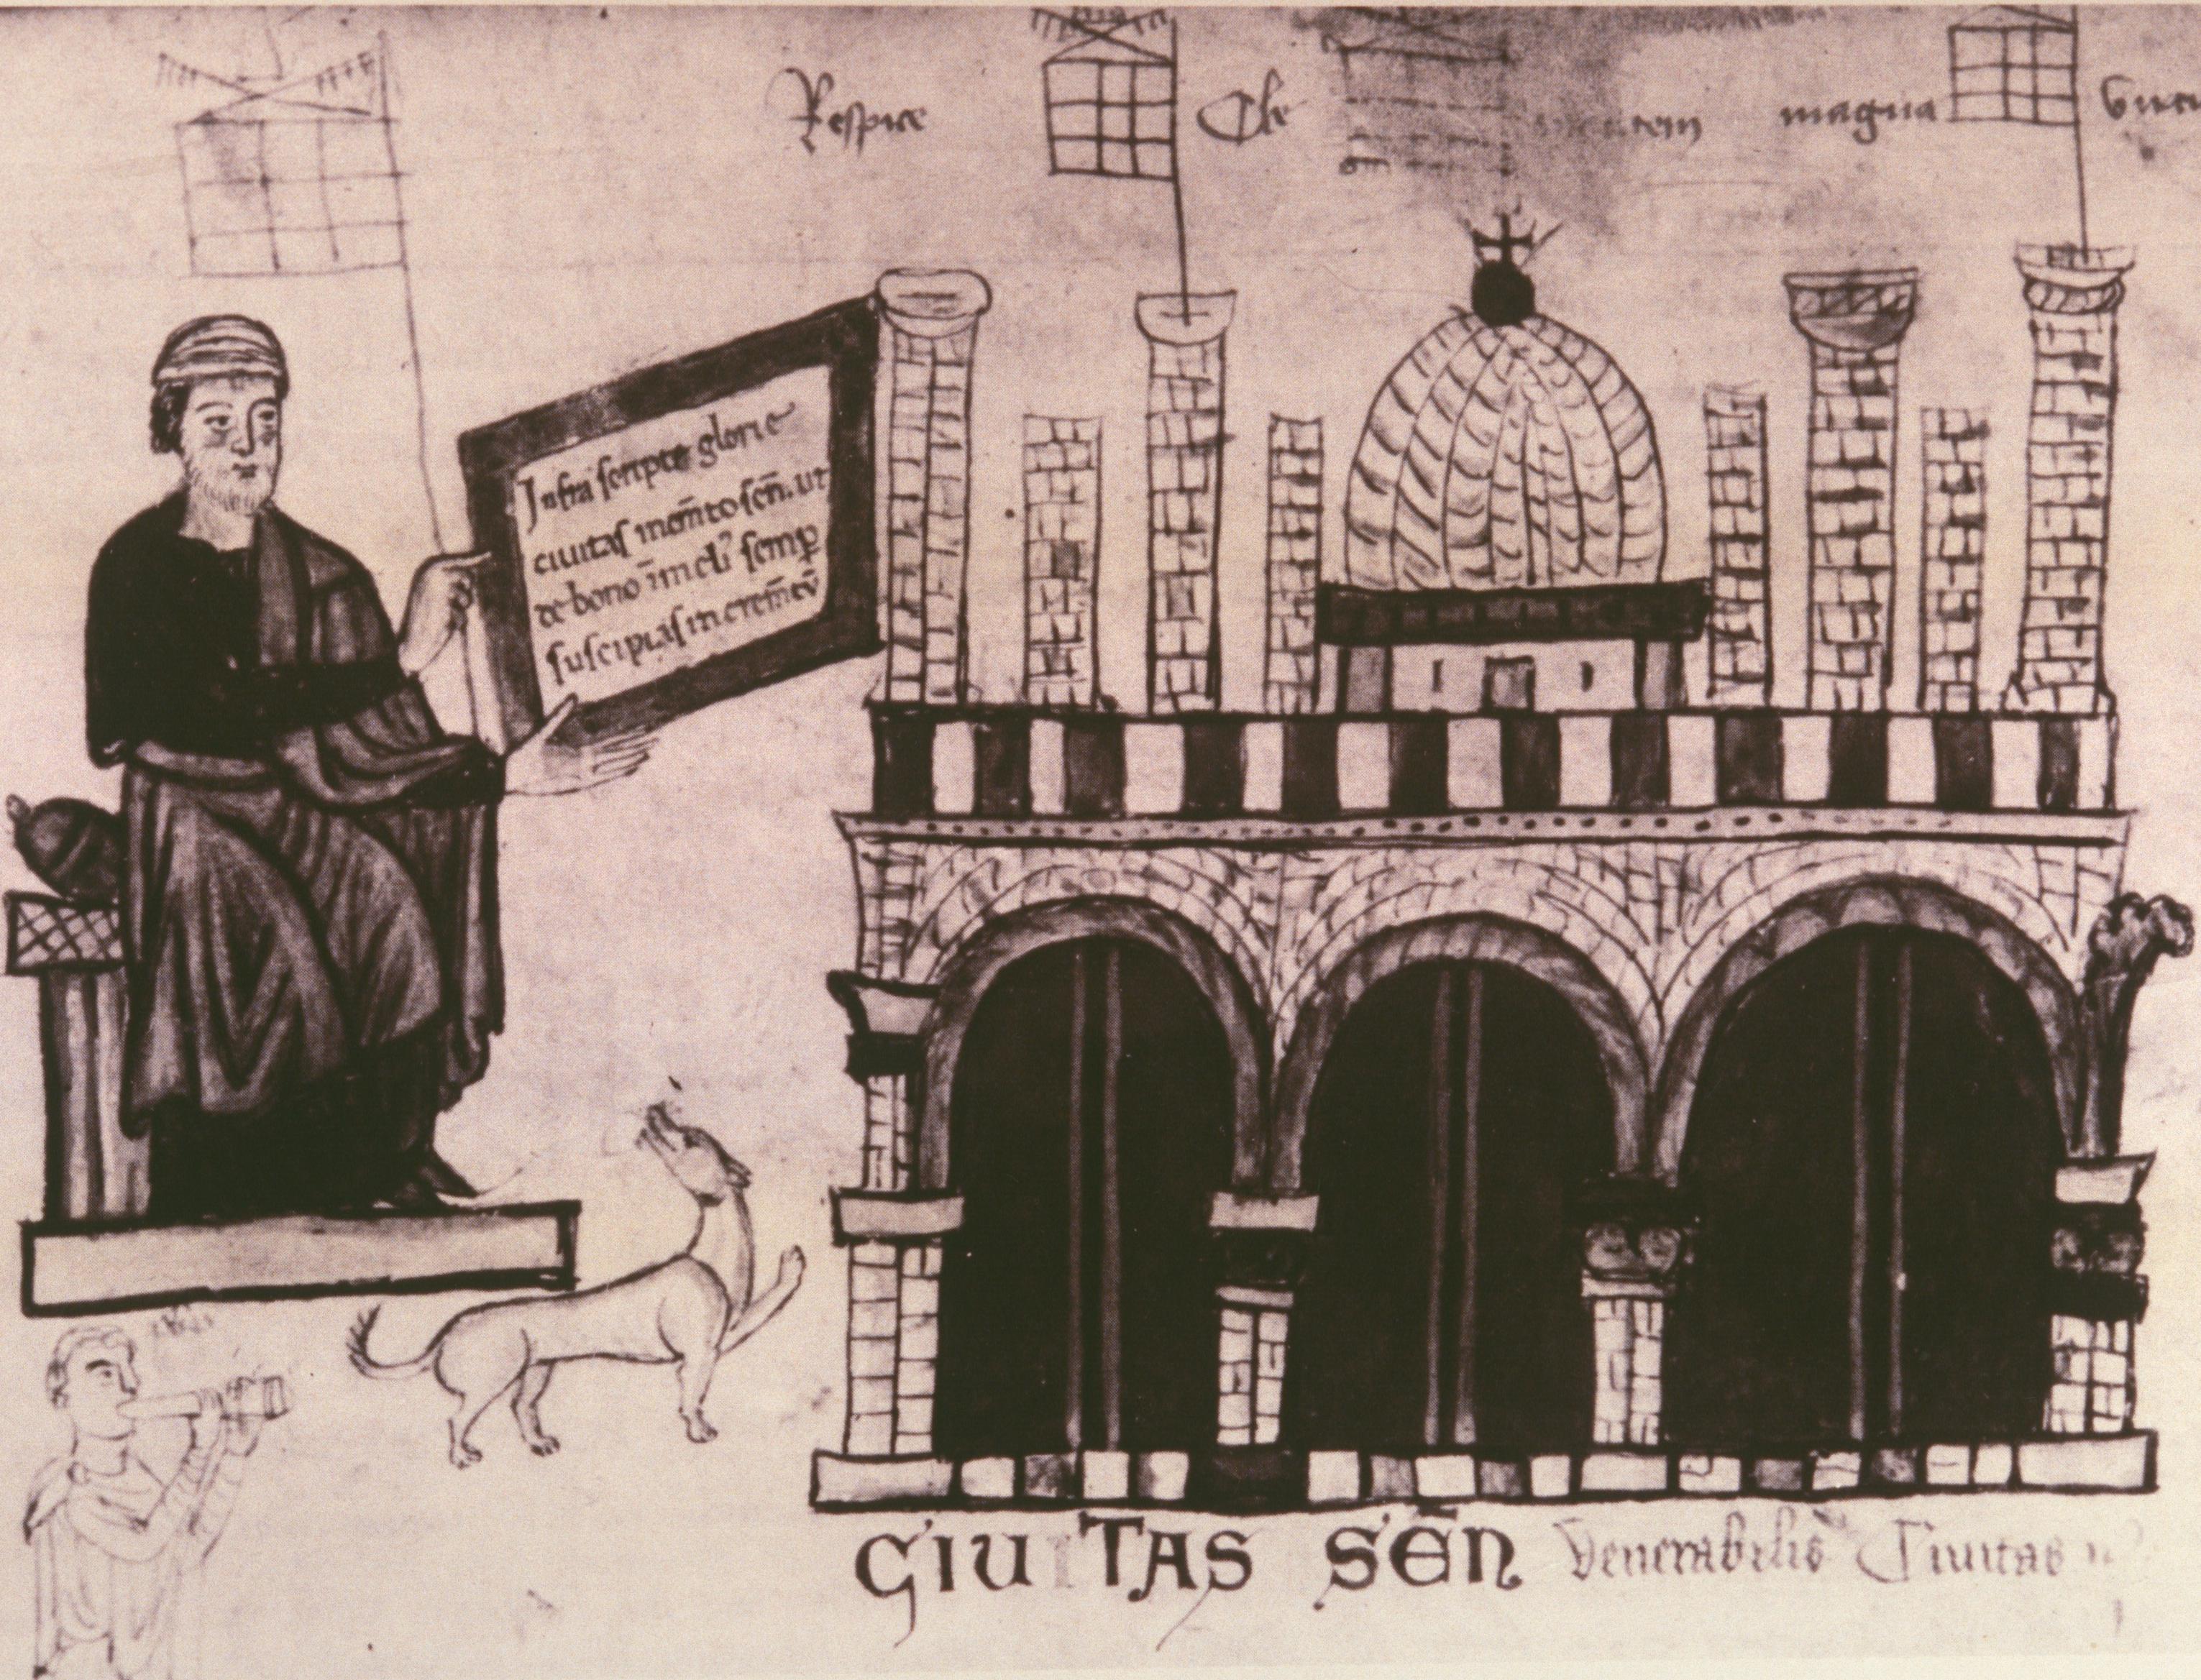 Respice Cle magna
Infra scripte glorie
ciuitas mem̄to sen̄. ut
de bono ī meli' semp̱
suscipias in crem̄tū
CIUITAS SEN̄ Venerabilis Ciuitas